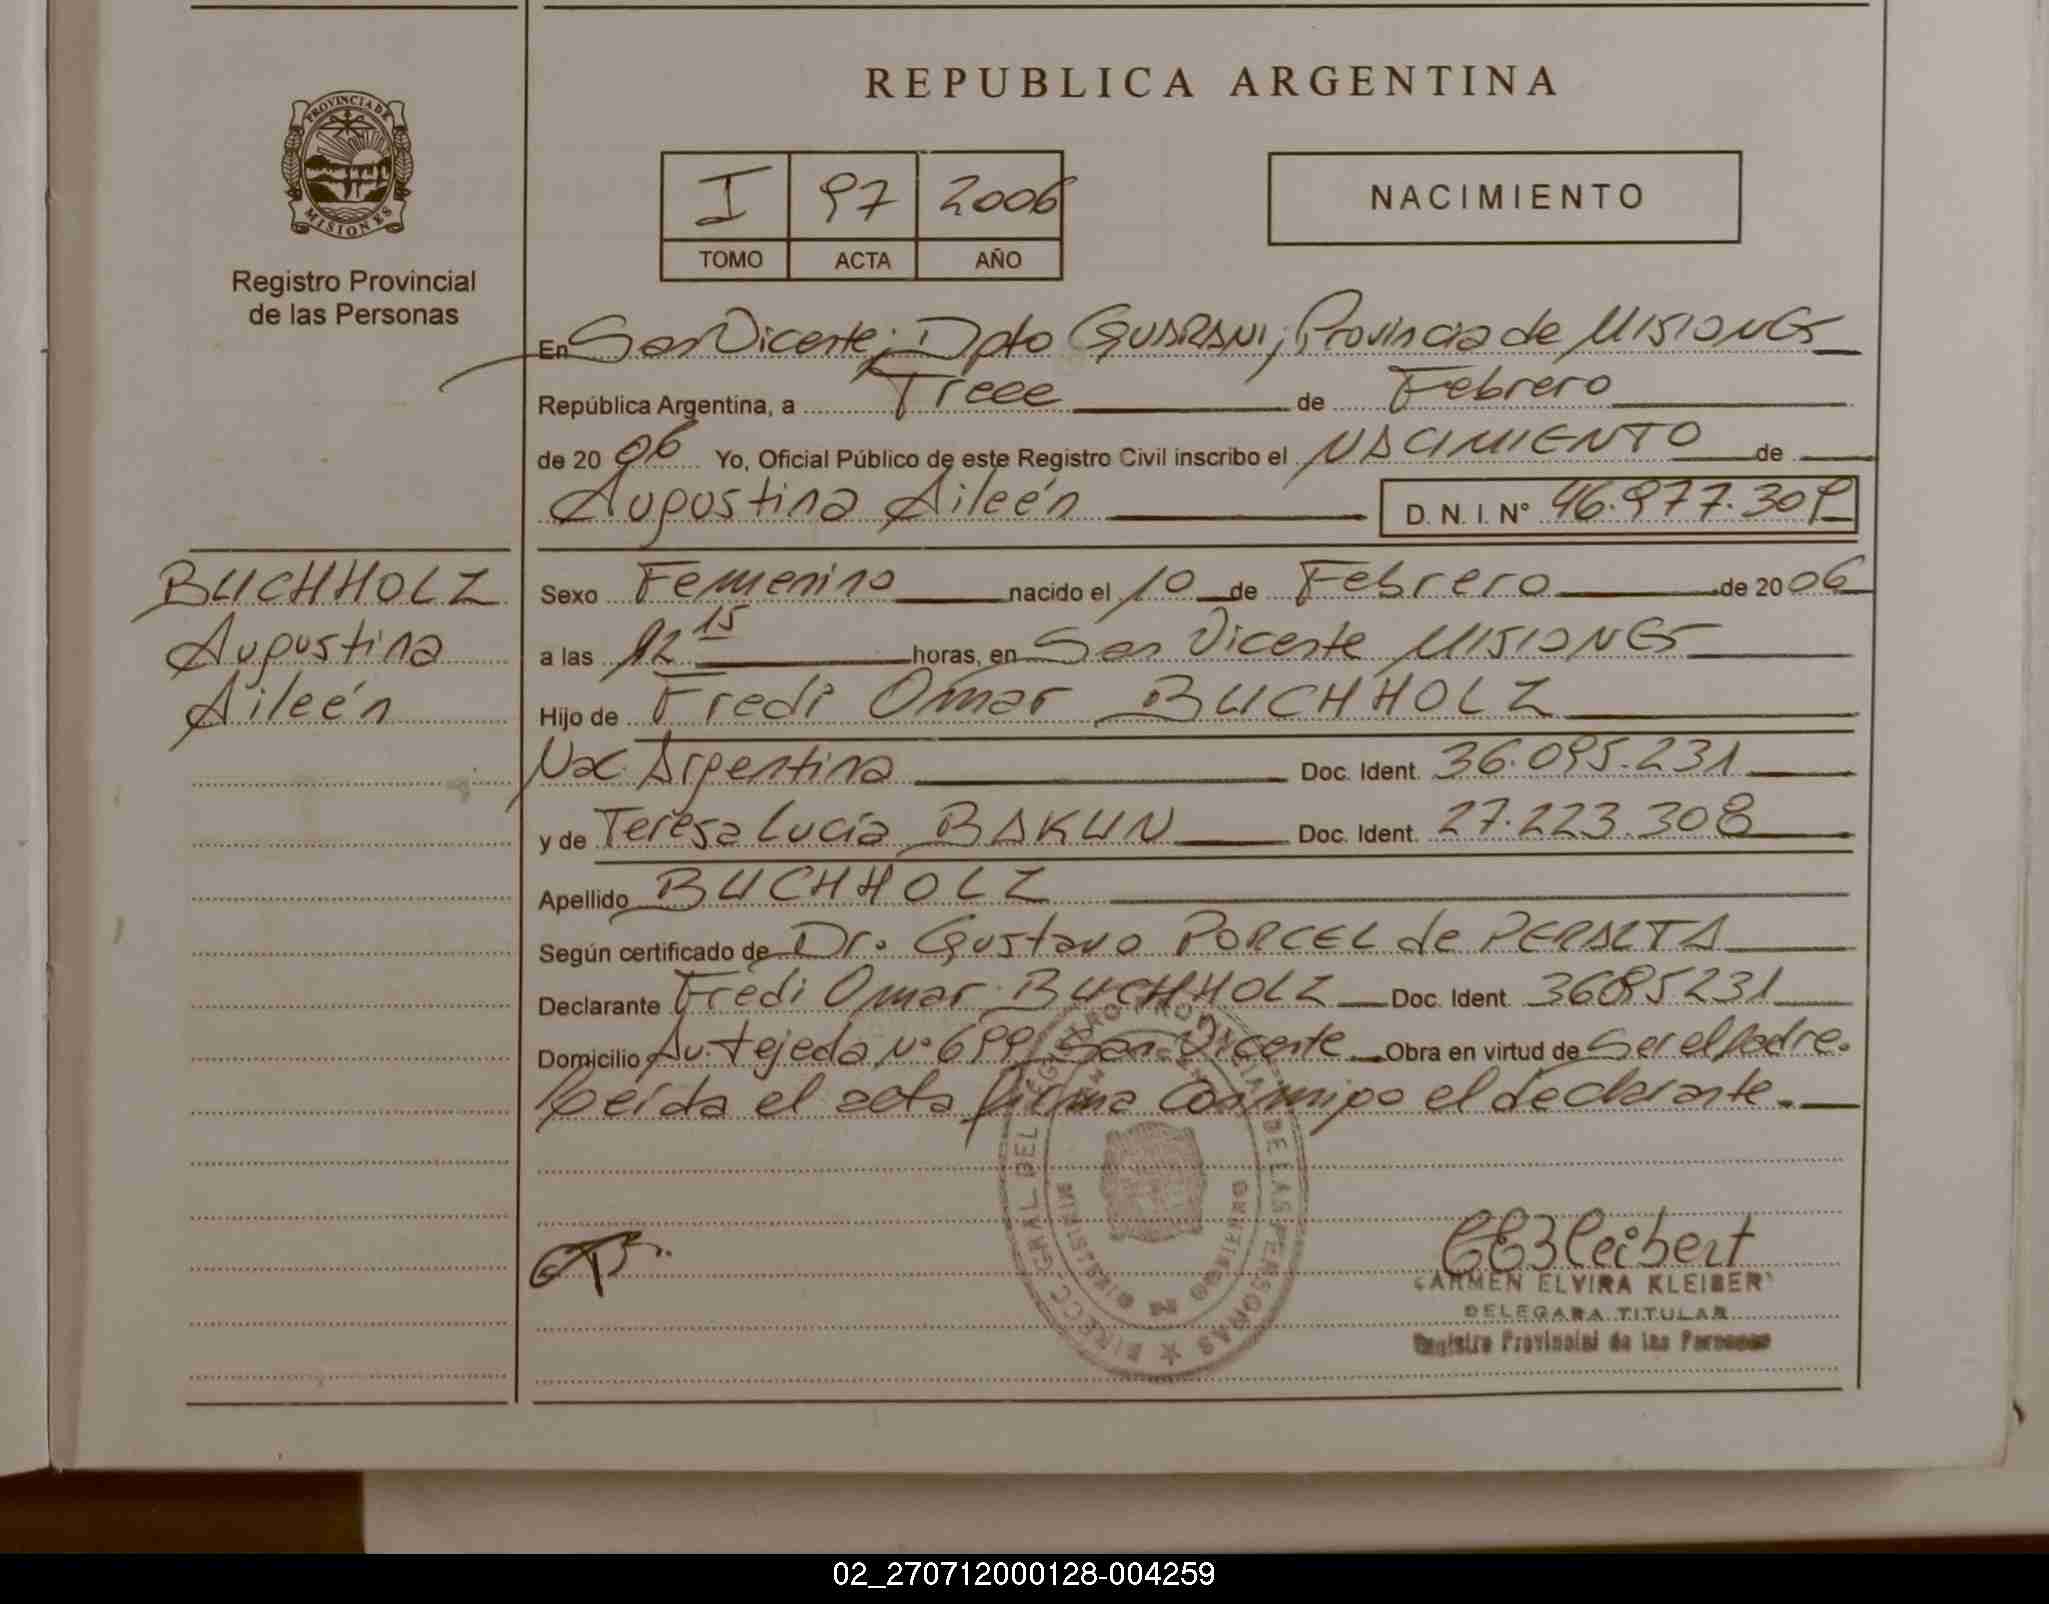 REPUBLICA ARGENTINA
PROVINCIA DE
MISIONES
Registro Provincial
de las Personas
I 97 2006
TOMO ACTA AÑO
NACIMIENTO
En San Vicente, Dpto GUARANI, Provincia de MISIONES
República Argentina, a Trece de Febrero
de 2006 Yo, Oficial Público de este Registro Civil inscribo el NACIMIENTO de
Augustina Aileén D. N. I. N° 46.977.309
BUCHHOLZ
Augustina
Aileén
Sexo Femenino nacido el 10 de Febrero de 2006
a las 12 15 horas, en San Vicente MISIONES
Hijo de Fredi Omar BUCHHOLZ
Nac. Argentina Doc. Ident. 36.095.231
y de Teresa Lucía BAKUN Doc. Ident. 27.223.308
Apellido BUCHHOLZ
Según certificado de Dr. Gustavo PORCEL de PERALTA
Declarante Fredi Omar BUCHHOLZ Doc. Ident. 36095231
Domicilio Av. Tejeda N° 699 San Vicente Obra en virtud de Ser el Padre.
Leída el acta firma Conmigo el declarante.
DIRECC GRAL DEL REGISTRO PROVINCIAL DE LAS PERSONAS
MINISTERIO DE GOBIERNO
CARMEN ELVIRA KLEIBER
DELEGADA TITULAR
Registro Provincial de las Personas
02_270712000128-004259